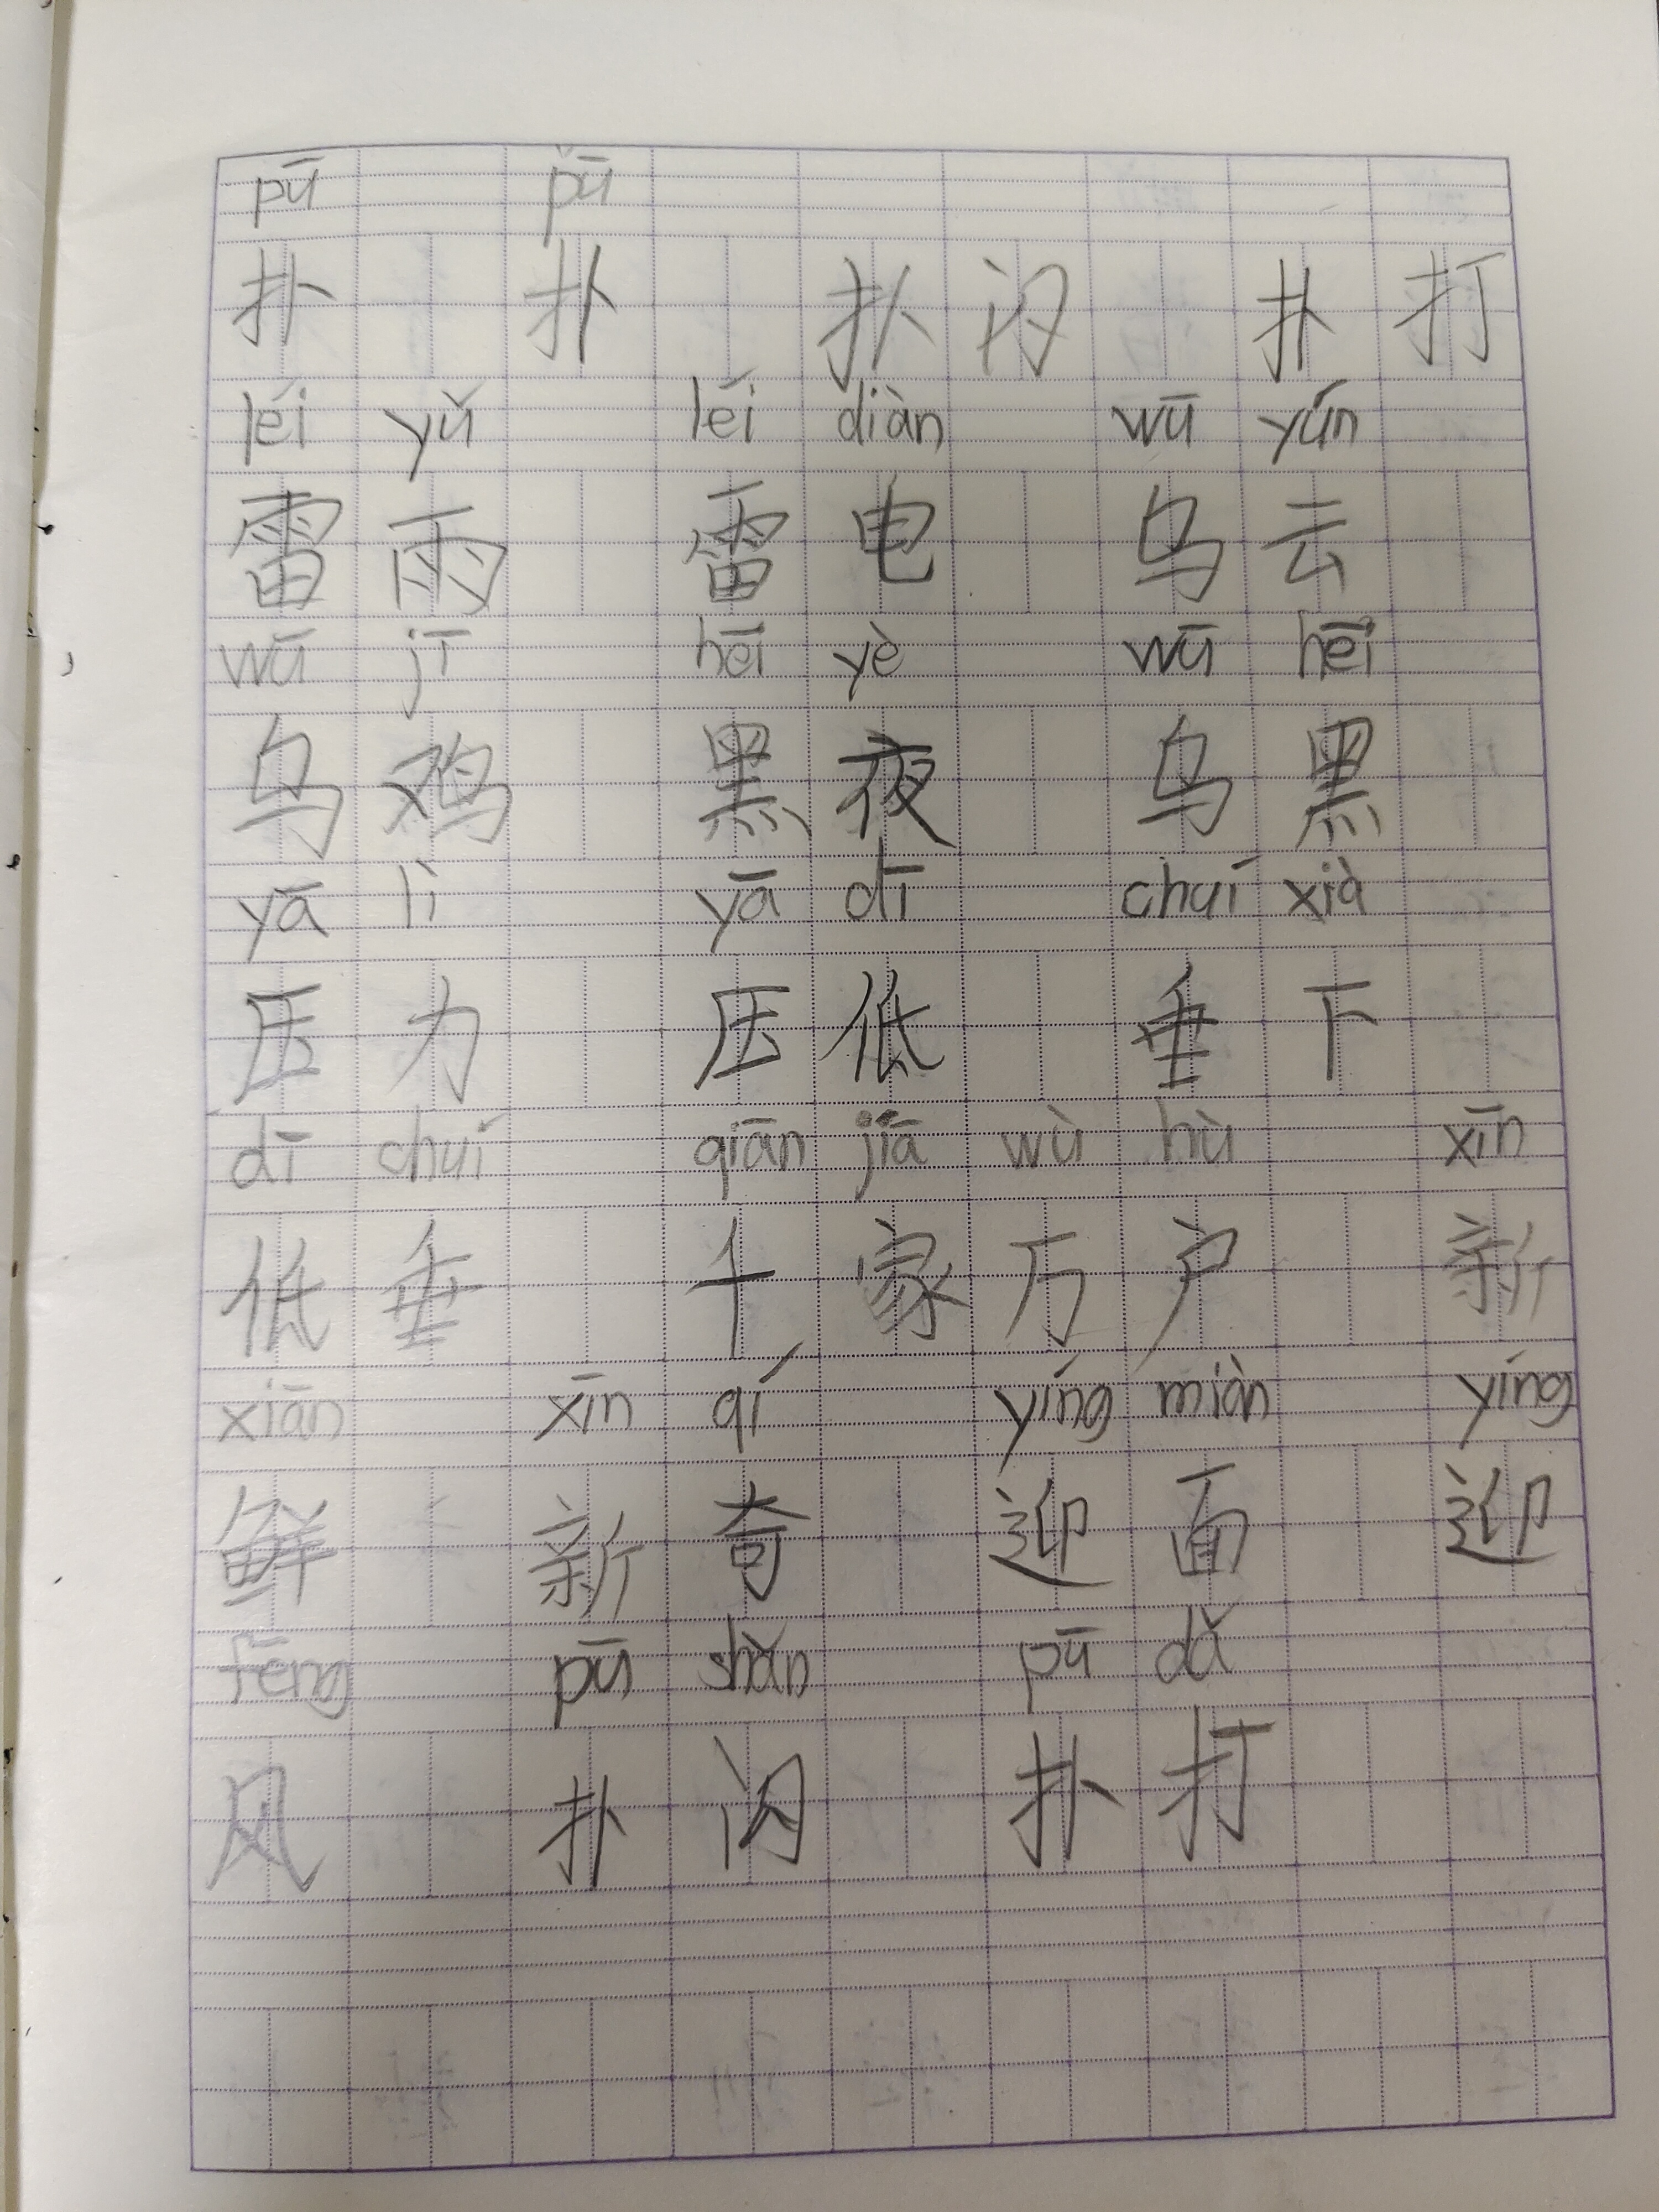 pū pū
扑 扑 扑闪 扑打
léi yǔ léi diàn wū yún
雷雨 雷电 乌云
wū jī hēi yè wū hēi
乌鸡 黑夜 乌黑
yā lì yā dī chuí xià
压力 压低 垂下
dī chuí qiān jiā wù hù xīn
低垂 千家万户 新
xiān xīn qí yíng miàn yíng
鲜 新奇 迎面 迎
fēng pū shǎn pū dǎ
风 扑闪 扑打